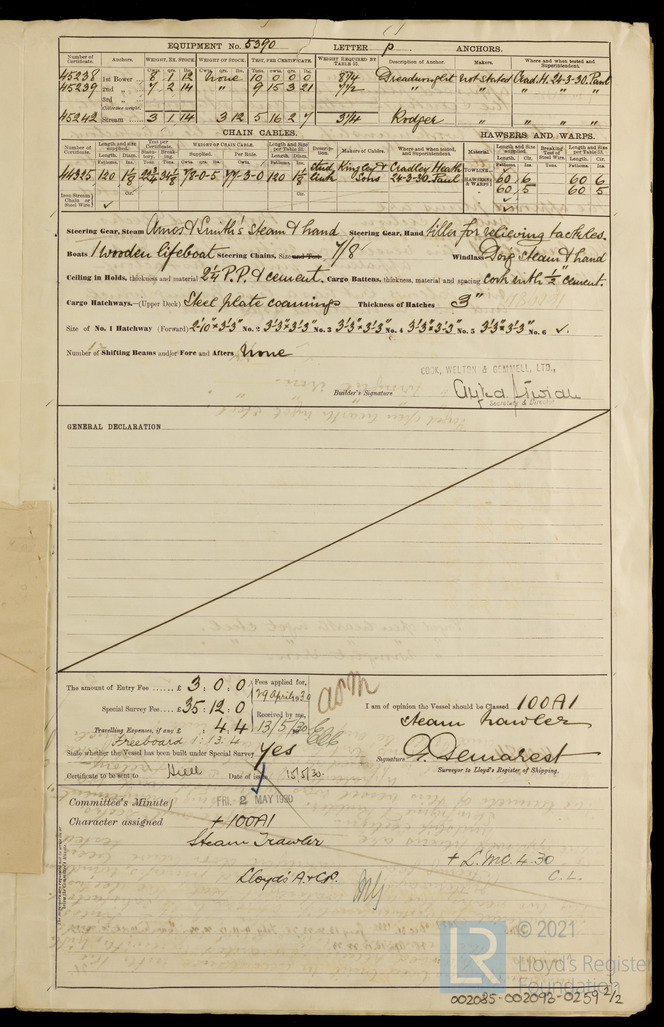 EQUIPMENT No. 5390 LETTER p ANCHORS.
Number of Certificate. Anchors. WEIGHT, EX. STOCK. WEIGHT OF STOCK. TEST, PER CERTIFICATE. WEIGHT REQUIRED BY TABLE 53. Description of Anchor. Makers. Where and when tested and Superintendent.
Cwts. qrs. lbs. Cwts. qrs. lbs. Tons. cwts. qrs. lbs. Cwts.
45238 1st Bower 8 1 12 None 10 0 0 0 8¼ Dreadnought not stated Crad. H. 24-3-30. Paul
45239 2nd „ 7 2 14 " 9 15 3 21 7½ " " " " "
3rd „
45242 Stream 3 1 14 3 12 5 16 2 7 3¼ Rodger " " " "
CHAIN CABLES. HAWSERS AND WARPS.
Number of Certificate. Length and size supplied. Test per Certificate. WEIGHT OF CHAIN CABLE. Length and Size per Table 53. Description. Makers of Cables. Where and when tested, and Superintendent. Material. Length and Size supplied. Breaking Test of Steel Wire. Length and Size per Table 53.
Fathoms. Diam. Supplied. Per Rule. Fathoms. Diam. Length. Cir. Length. Cir.
44325 120 1⅛ 78-0-5 77-3-0 120 1⅛ Stud link Kingley & Sons Cradley Heath 24-3-30. Paul
TOWLINE ✓
HAWSERS & WARPS 60 6 60 6
60 5 60 5
Iron Stream Chain or Steel Wire ✓
Steering Gear, Steam Amos & Smith's Steam & hand Steering Gear, Hand tiller for relieving tackles.
Boats 1 wooden lifeboat Steering Chains, Size and Test 7/8 Windlass Dorg steam & hand
Ceiling in Holds, thickness and material 2¼ P.P. & cement. Cargo Battens, thickness, material and spacing cork with ½" cement.
Cargo Hatchways.—(Upper Deck) Steel plate coamings Thickness of Hatches 3"
Size of No. 1 Hatchway (Forward) 2'-10" × 3'-3" No. 2 3'-3" × 3'-3" No. 3 3'-3" × 3'-3" No. 4 3'-3" × 3'-3" No. 5 3'-3" × 3'-3" No. 6 ✓.
Number of Shifting Beams and/or Fore and Afters None
COOK, WELTON & GEMMELL, LTD.,
Builder's Signature
Secretary & Director
GENERAL DECLARATION
The amount of Entry Fee ...... £ 3 : 0 : 0 Fees applied for,
29 April 1930
Special Survey Fee.... £ 35 : 12 : 0
Received by me,
Travelling Expenses, if any £ : 4 . 4 13/5/30
Freeboard 1 : 13 : 4
I am of opinion the Vessel should be Classed 100A1
Steam Trawler
State whether the Vessel has been built under Special Survey Yes
Signature O. Demarest
Surveyor to Lloyd's Register of Shipping.
Certificate to be sent to Hull Date of issue 15/5/30.
Committee's Minute FRI. 2 MAY 1930
Character assigned + 100A1
Steam Trawler
+ L.M.C. 4.30
C. L.
Lloyd's A. & C.P.
© 2021
LR
Lloyd's Register
Foundation
002085-002093-0259 2/2